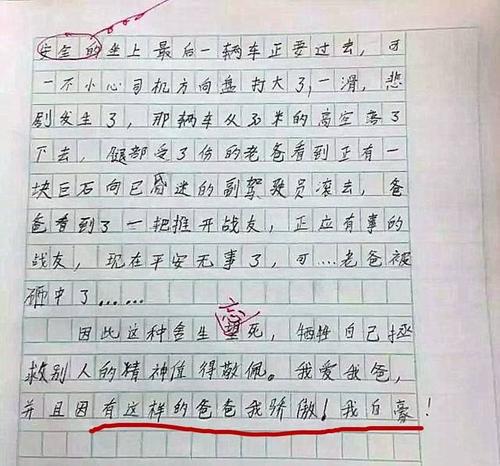 安全的坐上最后一辆车正要过去，可
一不小心司机方向盘打大了，一滑，悲
剧发生了，那辆车从30米的高空落了
下去，腿部受了份的老爸看到正有一
块巨石向已昏迷的副驾驶员滚去，爸
爸看到了一把推开战友，正应有事的
战友，现在平安无事了，可……老爸被
砸中了……
忘
因此这种舍生望死，牺牲自己拯
救别人的精神值得敬佩。我爱我爸，
并且因有这样的爸爸我骄傲！我自豪！